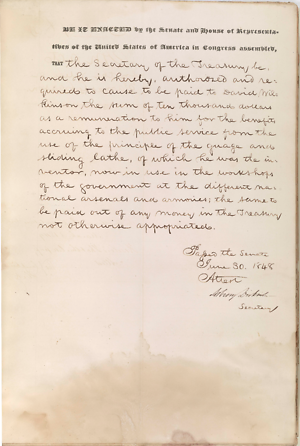 BE IT ENACTED by the Senate and House of Representa-
tives of the United States of America in Congress assembled,
THAT the Secretary of the Treasury be,
and he is hereby, authorized and re-
quired to cause to be paid to David Wil-
kinson the sum of ten thousand dollars
as a remuneration to him for the benefits
accruing to the public service from the
use of the principle of the guage and
sliding lathe, of which he was the in-
ventor, now in use in the workshops
of the government at the different na-
tional arsenals and armories; the same to
be paid out of any money in the Treasury
not otherwise appropriated.
Passed the Senate
June 30. 1848
Attest
Secretary